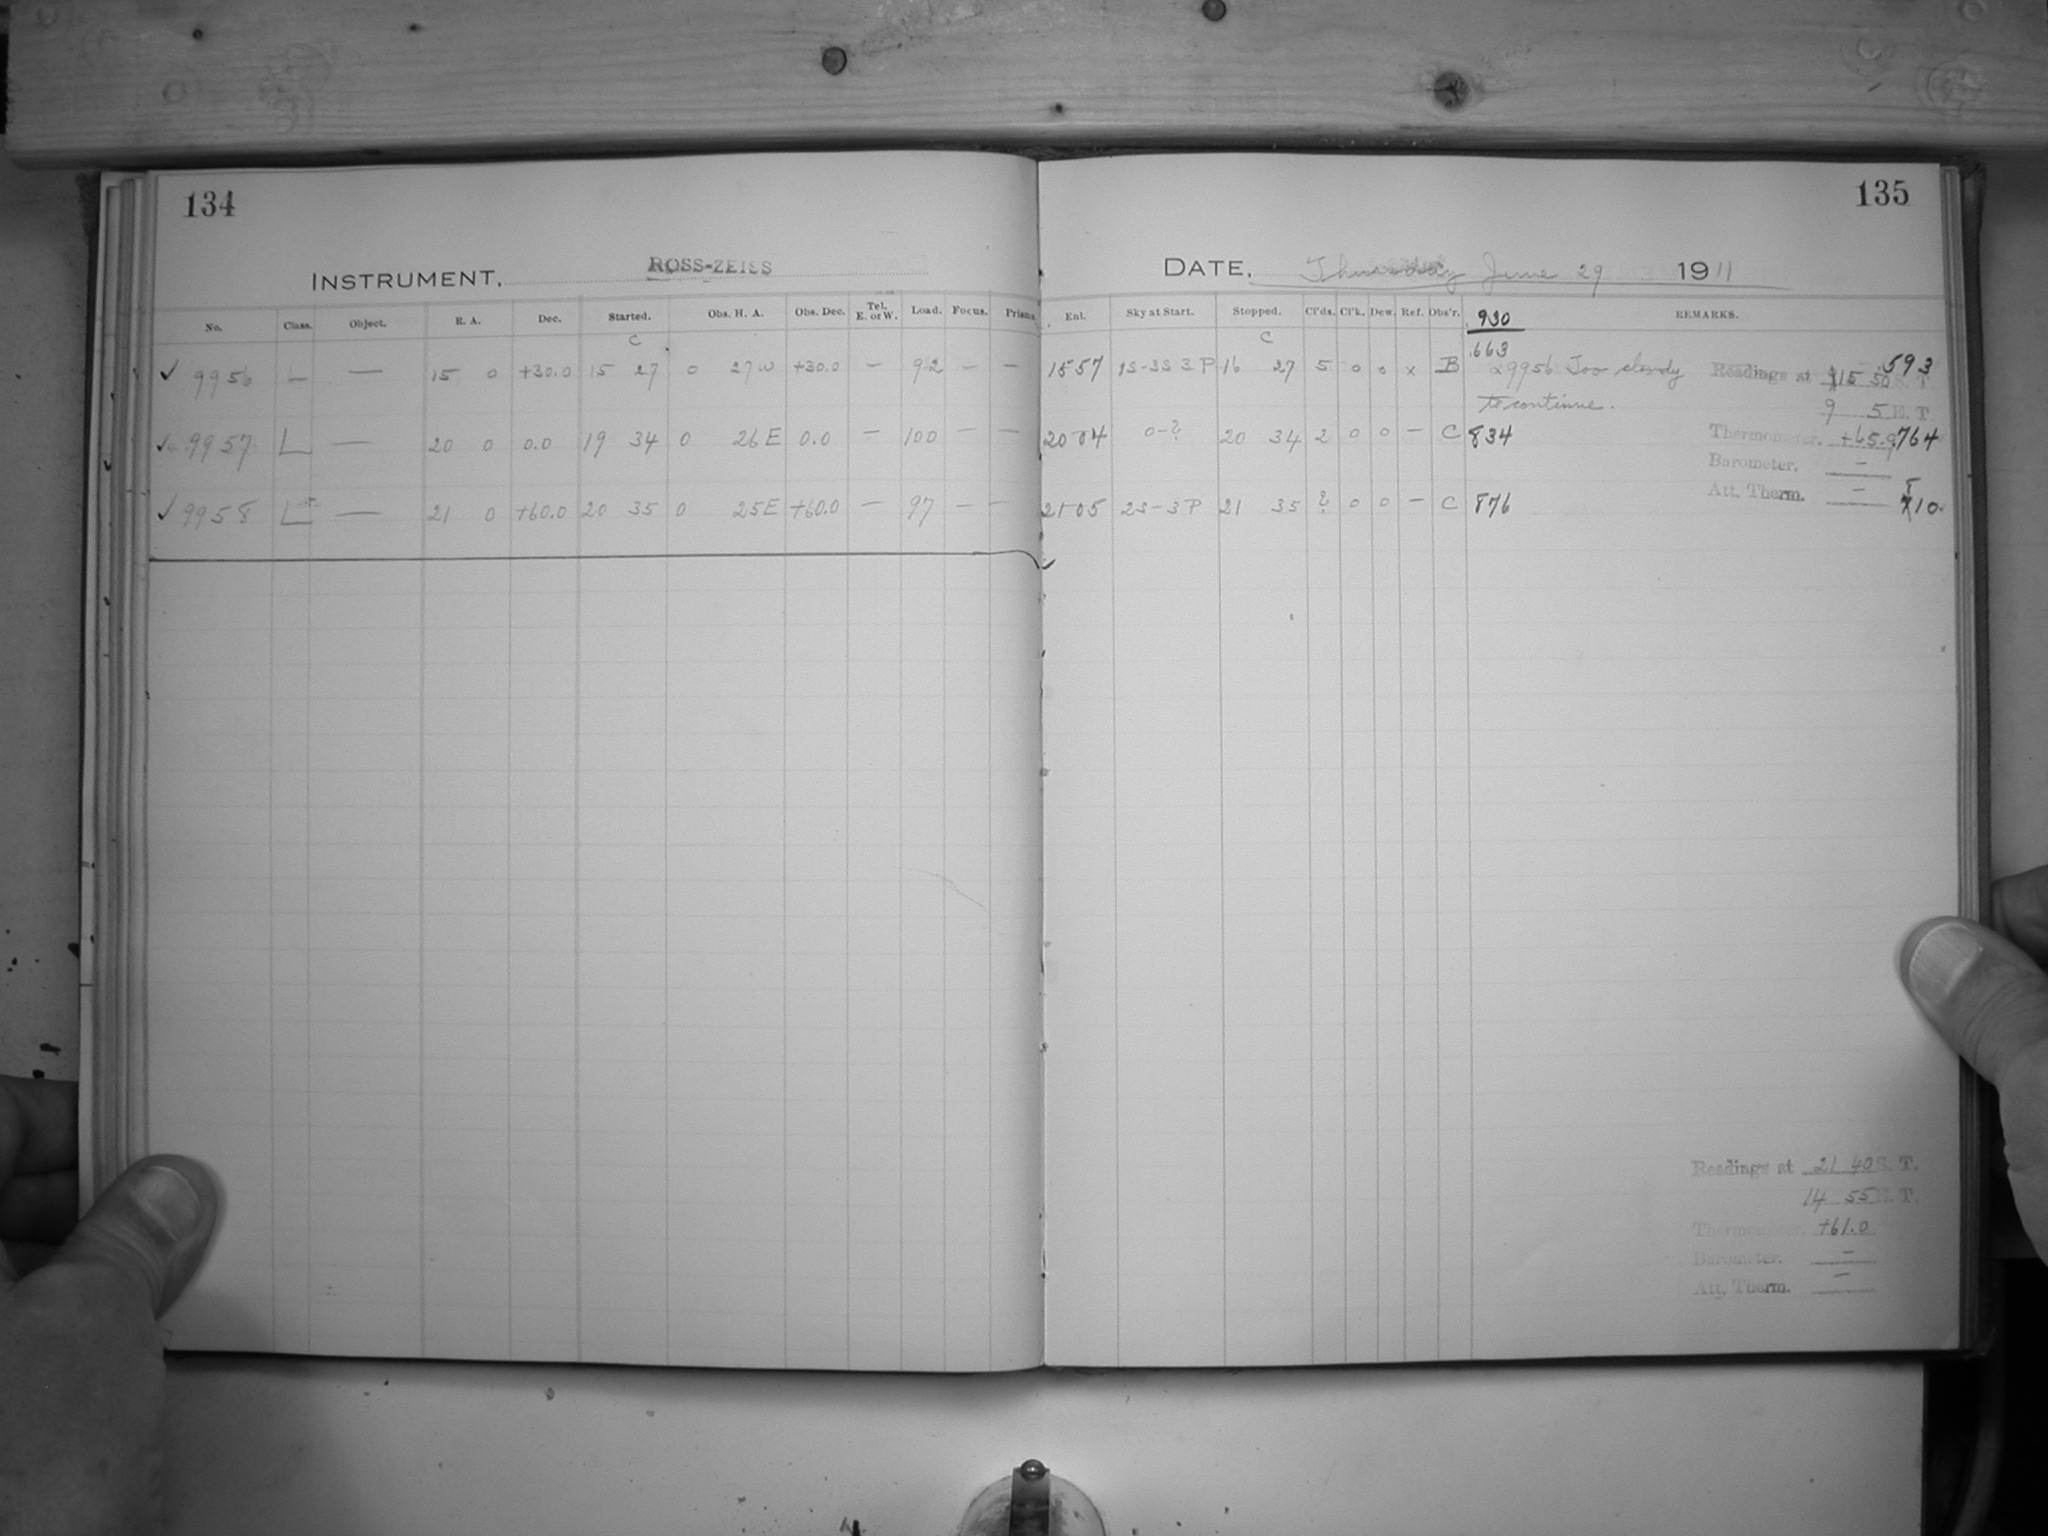 134
135
INSTRUMENT, ROSS-ZEISS
DATE, Thursday June 29 1911
No. Class. Object. R. A. Dec. Started. Obs. H. A. Obs. Dec. Tel. E. or W. Load. Focus. Prisms. Enl. Sky at Start. Stopped. Cl'ds. Cl'k. Dew. Ref. Obs'r. 930 REMARKS.
C C .663
✓ 9956 L — 15 0 +30.0 15 27 0 27 W +30.0 — 92 — — 1557 1S-3S 3P 16 27 5 0 0 x B 9956 Too cloudy Readings at 15 50 S. T. .593
to continue. 9 5 E. T.
✓ 9957 L — 20 0 0.0 19 34 0 26 E 0.0 — 100 — — 2004 0-? 20 34 2 0 0 — C 834 Thermometer. +65.9 .764
Barometer. —
Att. Therm. —
✓ 9958 L — 21 0 +60.0 20 35 0 25 E +60.0 — 97 — — 2105 2S-3P 21 35 ? 0 0 — C 876 710
Readings at 21 40 S. T.
14 55 E. T.
Thermometer. +61.0
Barometer. —
Att. Therm. —